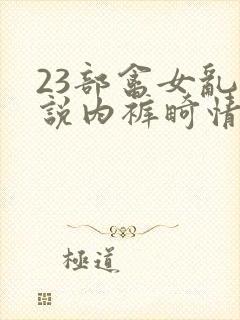 23部畜女乱
説内裤畸情
極道